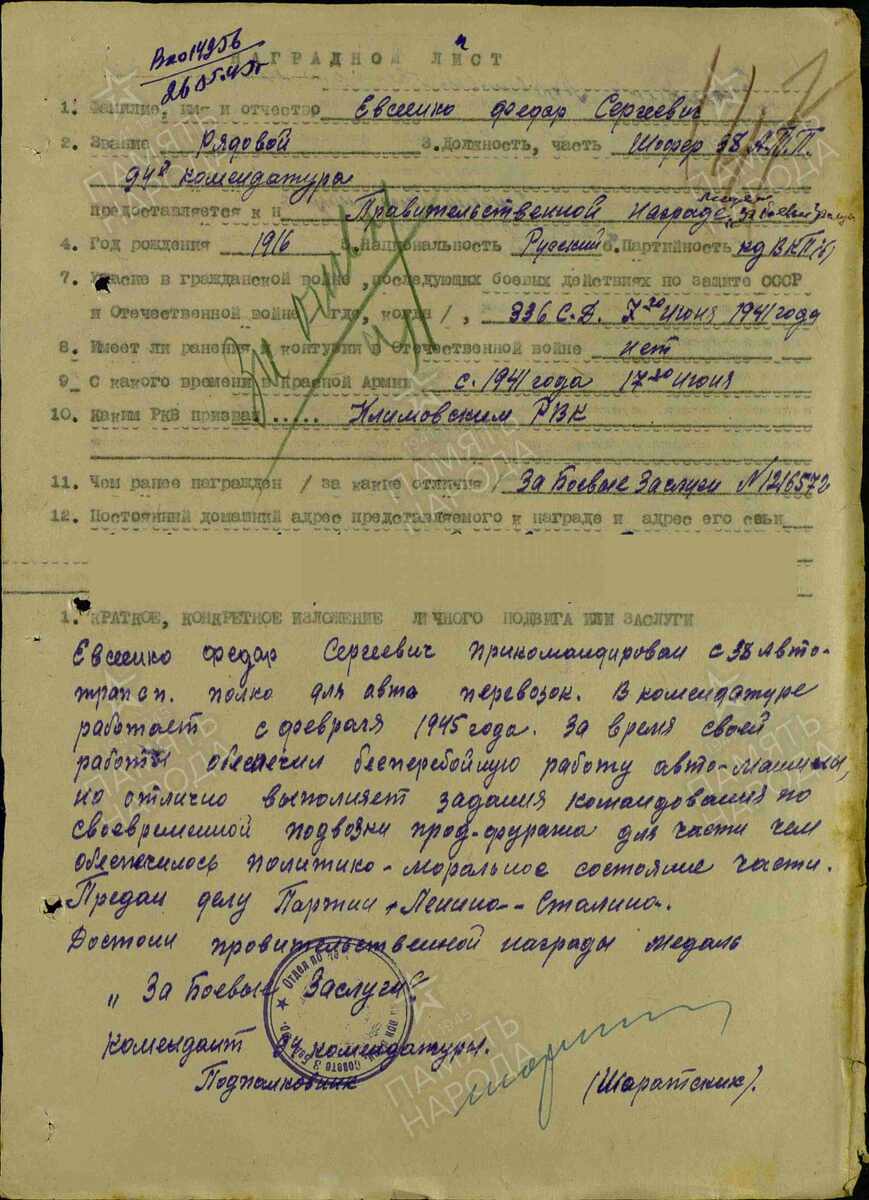 Вх 014256
26.05.45г
НАГРАДНОЙ ЛИСТ
1. Фамилие, имя и отчество Евсеенко Федар Сергеевич
2. Звание Рядовой 3. Должность, часть Шофер 38 А.Т.П.
94й комендатура
предоставляется к Правительственной награде Медаль „За боевые заслуги
4. Год рождения 1916 5. Национальность Русский 6. Партийность кд ВКП(б)
7. Участие в гражданской войне, последующих боевых действиях по защите СССР
и Отечественной войне где, когда /, 336 С.Д. Июня 1941 года
8. Имеет ли ранения и контузии в Отечественной войне нет
9. С какого времени в Красной Армии с. 1941 года 17го Июня
10. Каким РКВ призван ..... Климовским РВК
11. Чем ранее награжден / за какие отличия / За Боевые Заслуги N 1216572
12. Постоянный домашний адрес представляемого к награде и адрес его семьи
1. КРАТКОЕ, КОНКРЕТНОЕ ИЗЛОЖЕНИЕ ЛИЧНОГО ПОДВИГА ИЛИ ЗАСЛУГИ
Евсеенко Федар Сергеевич прикомандирован с 38 Авто-
трансп. полка для авта перевозок. В комендатуре
работает с февраля 1945 года. За время своей
работы обеспечил бесперебойную работу авто-машины,
но отлично выполняет задания командования по
своевременной подвозки прод-фуража для части чем
обеспечилось политико-моральное состояние части.
Предан делу Партии Ленина-Сталина.
Достоин правительственной награды медаль
„За Боевые Заслуги"
Комендант 94 комендатуры.
Подполковник (Шаратский).
ПАМЯТЬ НАРОДА